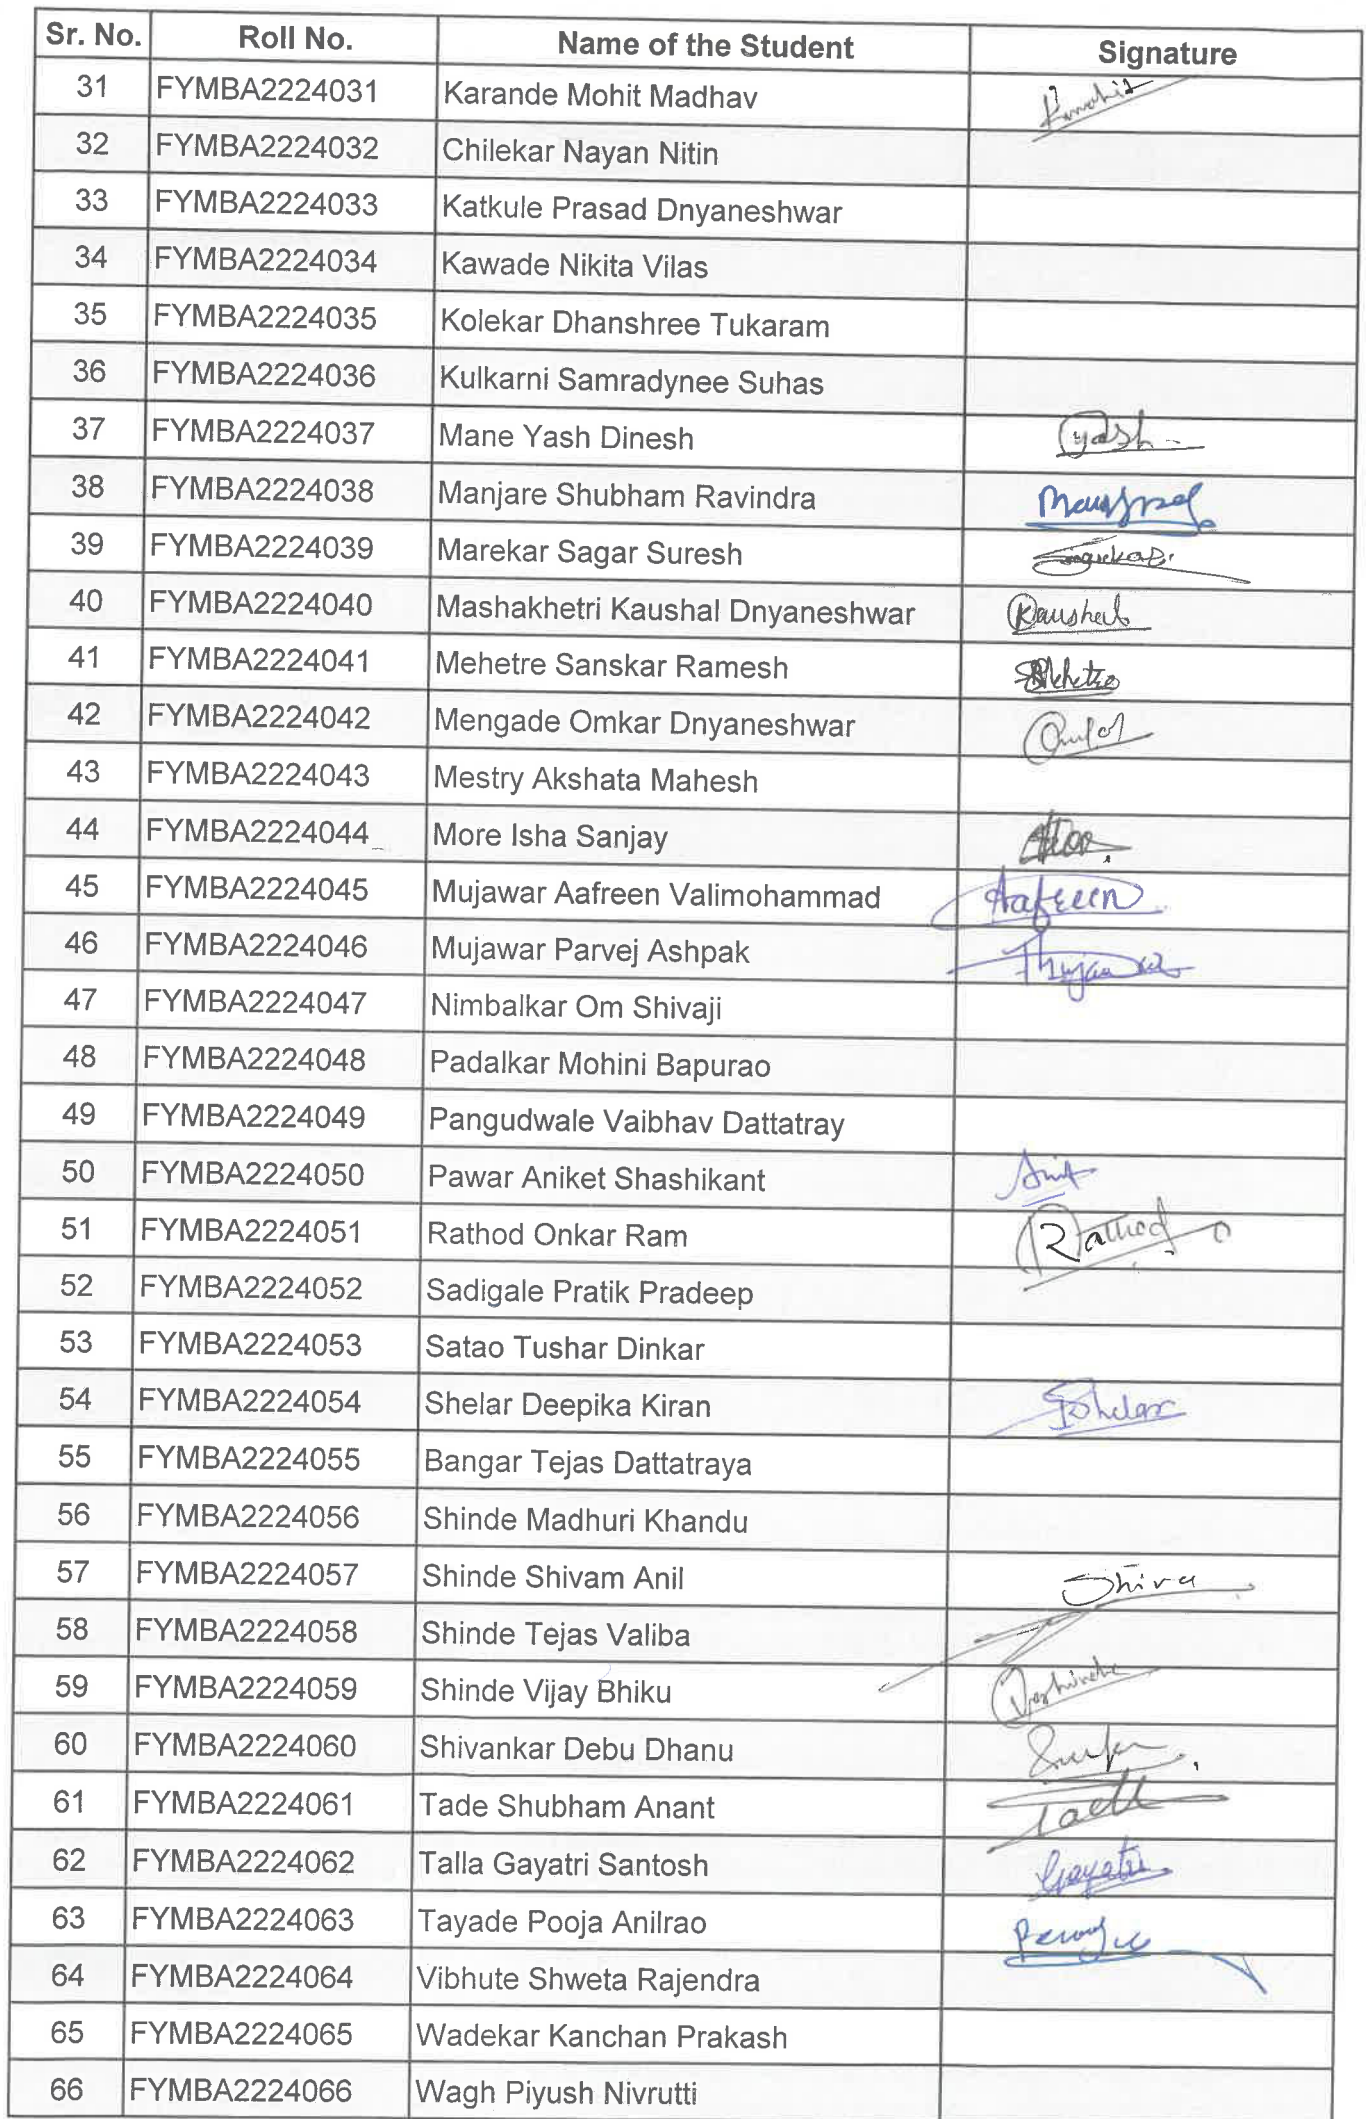 Sr. No. Roll No. Name of the Student Signature
31 FYMBA2224031 Karande Mohit Madhav
32 FYMBA2224032 Chilekar Nayan Nitin
33 FYMBA2224033 Katkule Prasad Dnyaneshwar
34 FYMBA2224034 Kawade Nikita Vilas
35 FYMBA2224035 Kolekar Dhanshree Tukaram
36 FYMBA2224036 Kulkarni Samradynee Suhas
37 FYMBA2224037 Mane Yash Dinesh Yash
38 FYMBA2224038 Manjare Shubham Ravindra
39 FYMBA2224039 Marekar Sagar Suresh
40 FYMBA2224040 Mashakhetri Kaushal Dnyaneshwar Kaushal
41 FYMBA2224041 Mehetre Sanskar Ramesh
42 FYMBA2224042 Mengade Omkar Dnyaneshwar
43 FYMBA2224043 Mestry Akshata Mahesh
44 FYMBA2224044 More Isha Sanjay
45 FYMBA2224045 Mujawar Aafreen Valimohammad Aafreen
46 FYMBA2224046 Mujawar Parvej Ashpak
47 FYMBA2224047 Nimbalkar Om Shivaji
48 FYMBA2224048 Padalkar Mohini Bapurao
49 FYMBA2224049 Pangudwale Vaibhav Dattatray
50 FYMBA2224050 Pawar Aniket Shashikant
51 FYMBA2224051 Rathod Onkar Ram Rathod
52 FYMBA2224052 Sadigale Pratik Pradeep
53 FYMBA2224053 Satao Tushar Dinkar
54 FYMBA2224054 Shelar Deepika Kiran Shelar
55 FYMBA2224055 Bangar Tejas Dattatraya
56 FYMBA2224056 Shinde Madhuri Khandu
57 FYMBA2224057 Shinde Shivam Anil Shiva
58 FYMBA2224058 Shinde Tejas Valiba
59 FYMBA2224059 Shinde Vijay Bhiku
60 FYMBA2224060 Shivankar Debu Dhanu
61 FYMBA2224061 Tade Shubham Anant
62 FYMBA2224062 Talla Gayatri Santosh Gayatri
63 FYMBA2224063 Tayade Pooja Anilrao
64 FYMBA2224064 Vibhute Shweta Rajendra
65 FYMBA2224065 Wadekar Kanchan Prakash
66 FYMBA2224066 Wagh Piyush Nivrutti